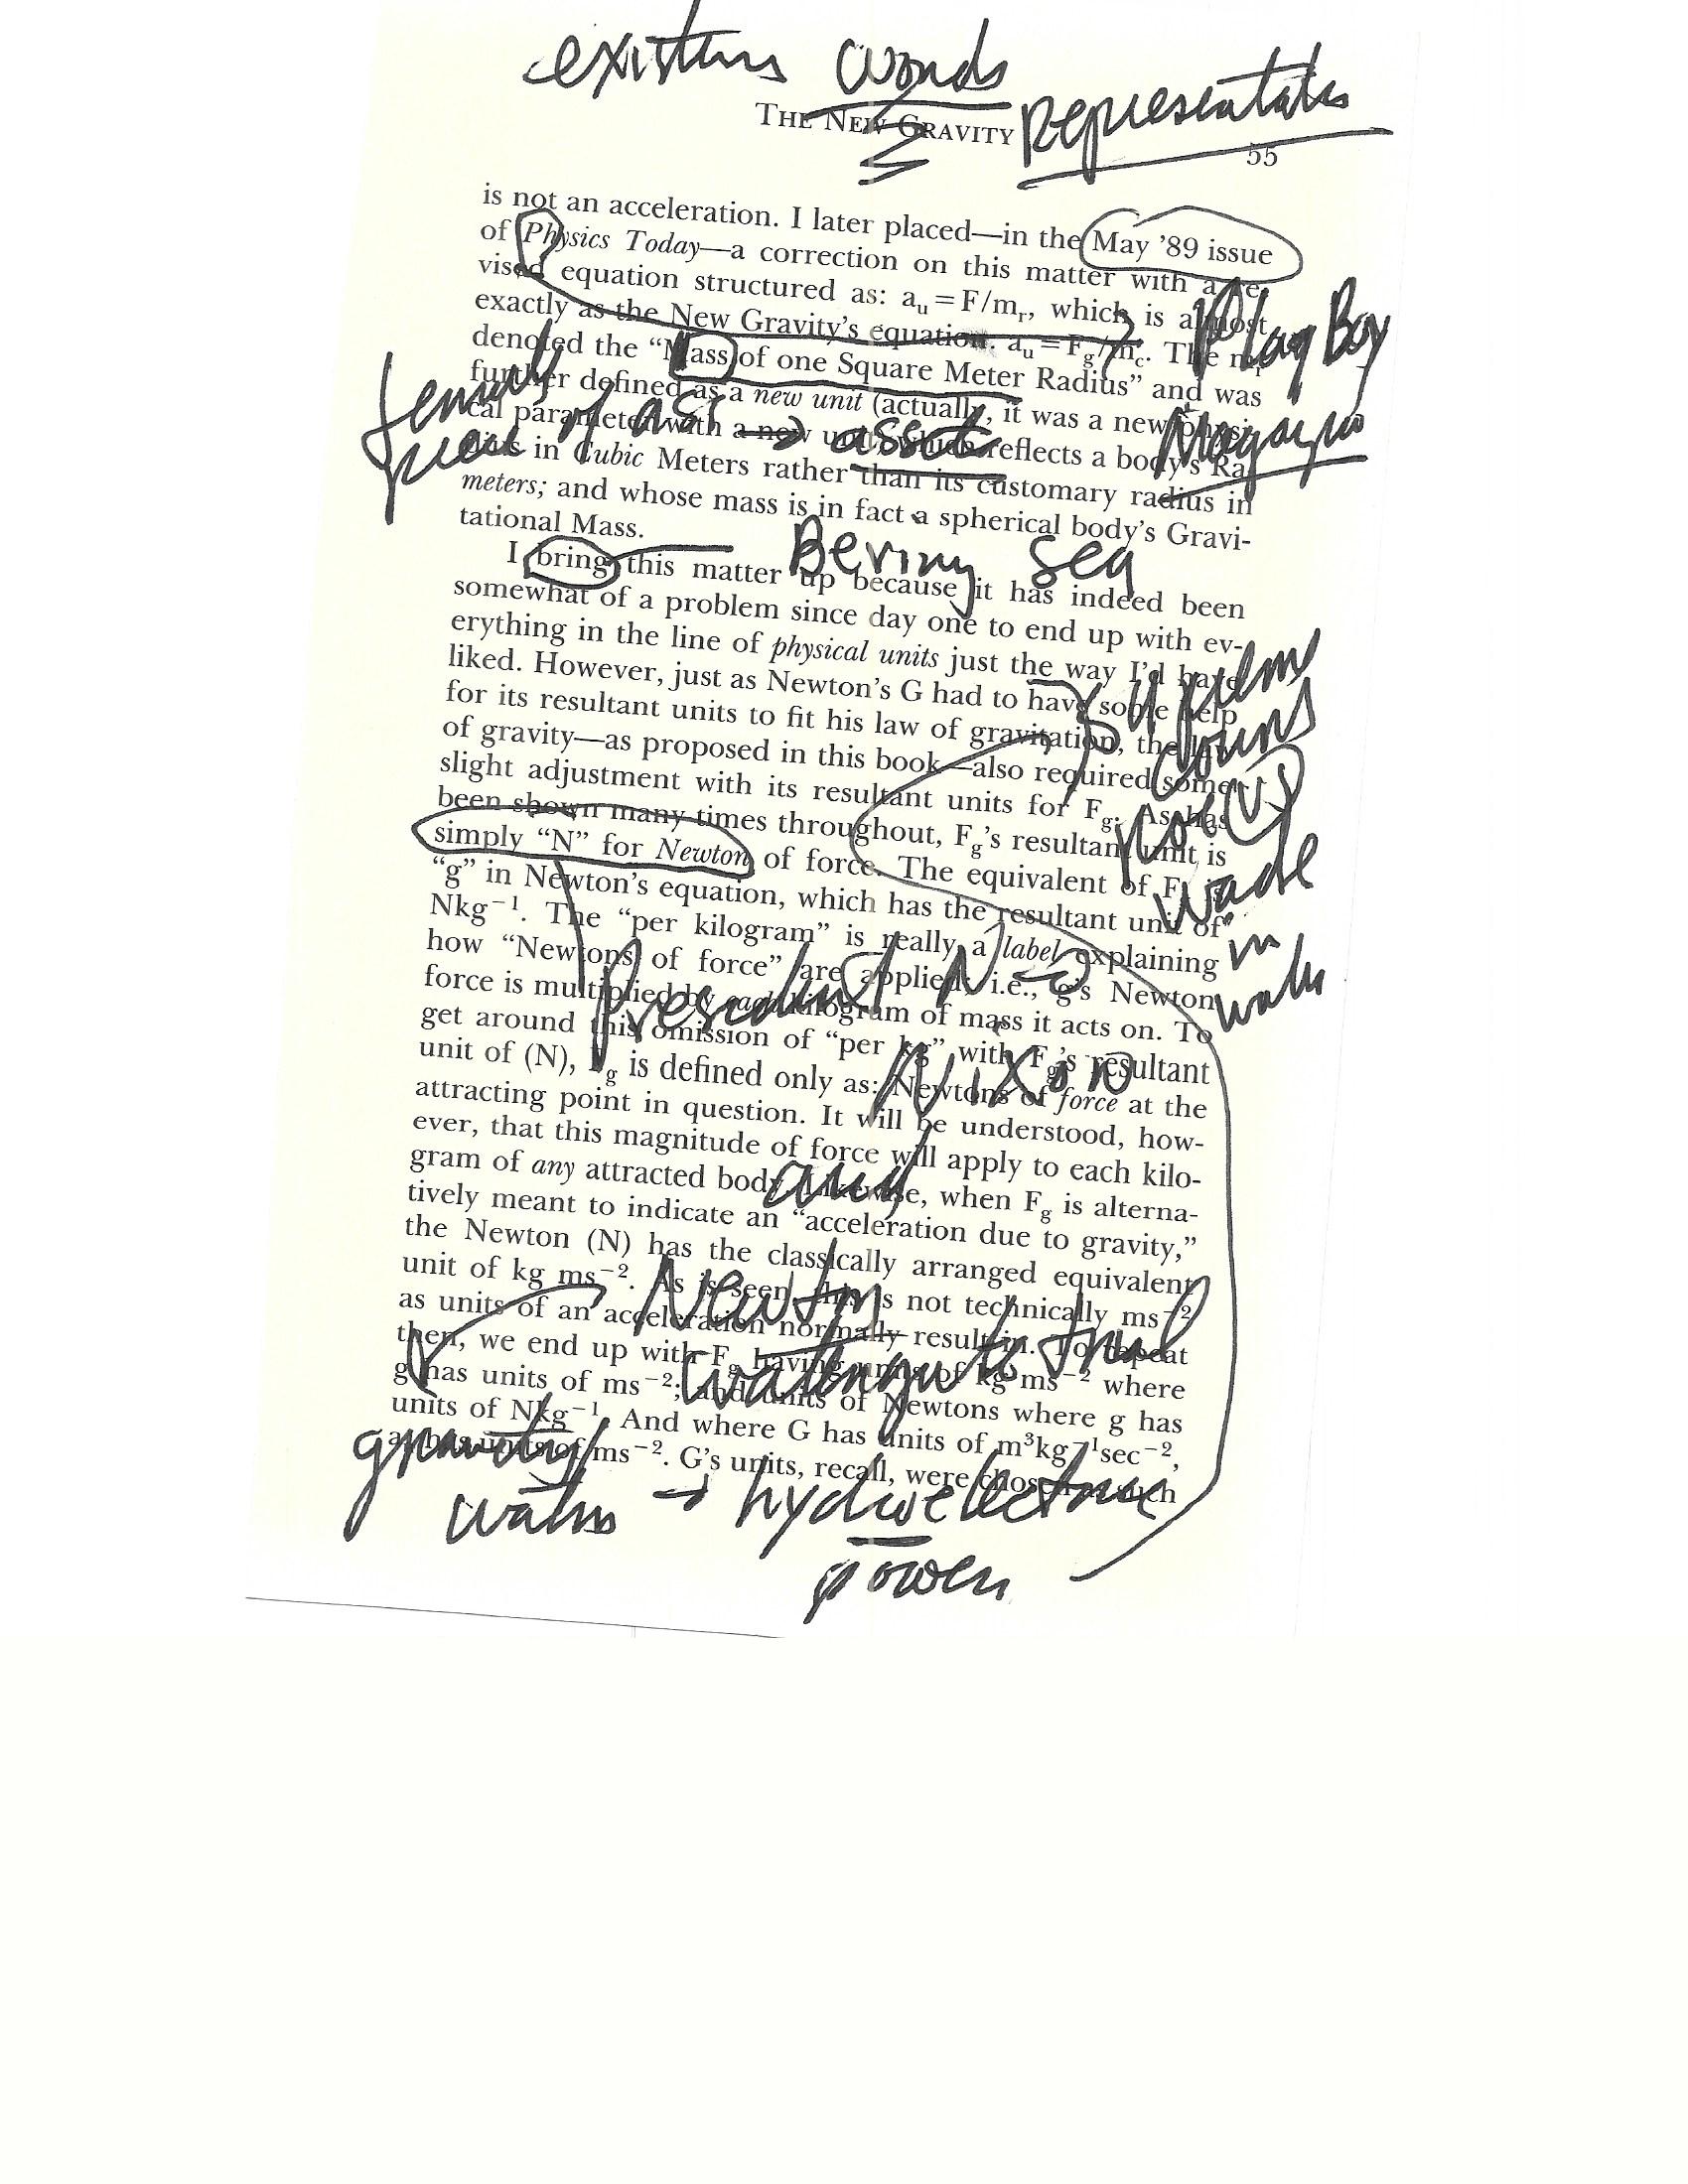 existens words
THE NEW GRAVITY
representatives
55
is not an acceleration. I later placed—in the May ’89 issue
of Physics Today—a correction on this matter with a re-
vised equation structured as: aᵤ = F/mᵣ, which is almost
exactly as the New Gravity’s equation. aᵤ = F_g/m_c. The mᵣ
denoted the “Mass of one Square Meter Radius” and was
further defined as a new unit (actually, it was a new physi-
cal parameter with a new unit, which reflects a body’s Ra-
in Cubic Meters rather than its customary radius in
meters; and whose mass is in fact a spherical body’s Gravi-
tational Mass.
Play Boy
Magazin
female
of ass → asset
I bring this matter up because it has indeed been
somewhat of a problem since day one to end up with ev-
erything in the line of physical units just the way I’d have
liked. However, just as Newton’s G had to have some help
for its resultant units to fit his law of gravitation, the law
of gravity—as proposed in this book—also required some
slight adjustment with its resultant units for F_g. As has
been shown many times throughout, F_g’s resultant unit is
simply “N” for Newton of force. The equivalent of F_g is
“g” in Newton’s equation, which has the resultant unit of
Nkg⁻¹. The “per kilogram” is really a label explaining
how “Newtons of force” are applied: i.e., g’s Newton
force is multiplied by each kilogram of mass it acts on. To
get around this omission of “per kg” with F_g’s resultant
unit of (N), F_g is defined only as: Newtons of force at the
attracting point in question. It will be understood, how-
ever, that this magnitude of force will apply to each kilo-
gram of any attracted body. Likewise, when F_g is alterna-
tively meant to indicate an “acceleration due to gravity,”
the Newton (N) has the classically arranged equivalent
unit of kg ms⁻². As is seen, this is not technically ms⁻²
as units of an acceleration normally result in. To repeat
then, we end up with F_g having units of kg ms⁻² where
g has units of ms⁻²; and units of Newtons where g has
units of Nkg⁻¹. And where G has units of m³kg⁻¹sec⁻²,
units of ms⁻². G’s units, recall, were chosen as such
Bering sea
Supreme
Roe (V)
wade
in
President N →
Nixon
and
Newton
watergate trial
gravity
→ hydroelectric
power